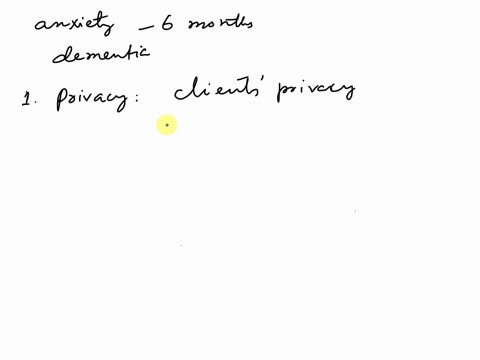 anxiety - 6 months
dementia
1. Privacy: clients' privacy